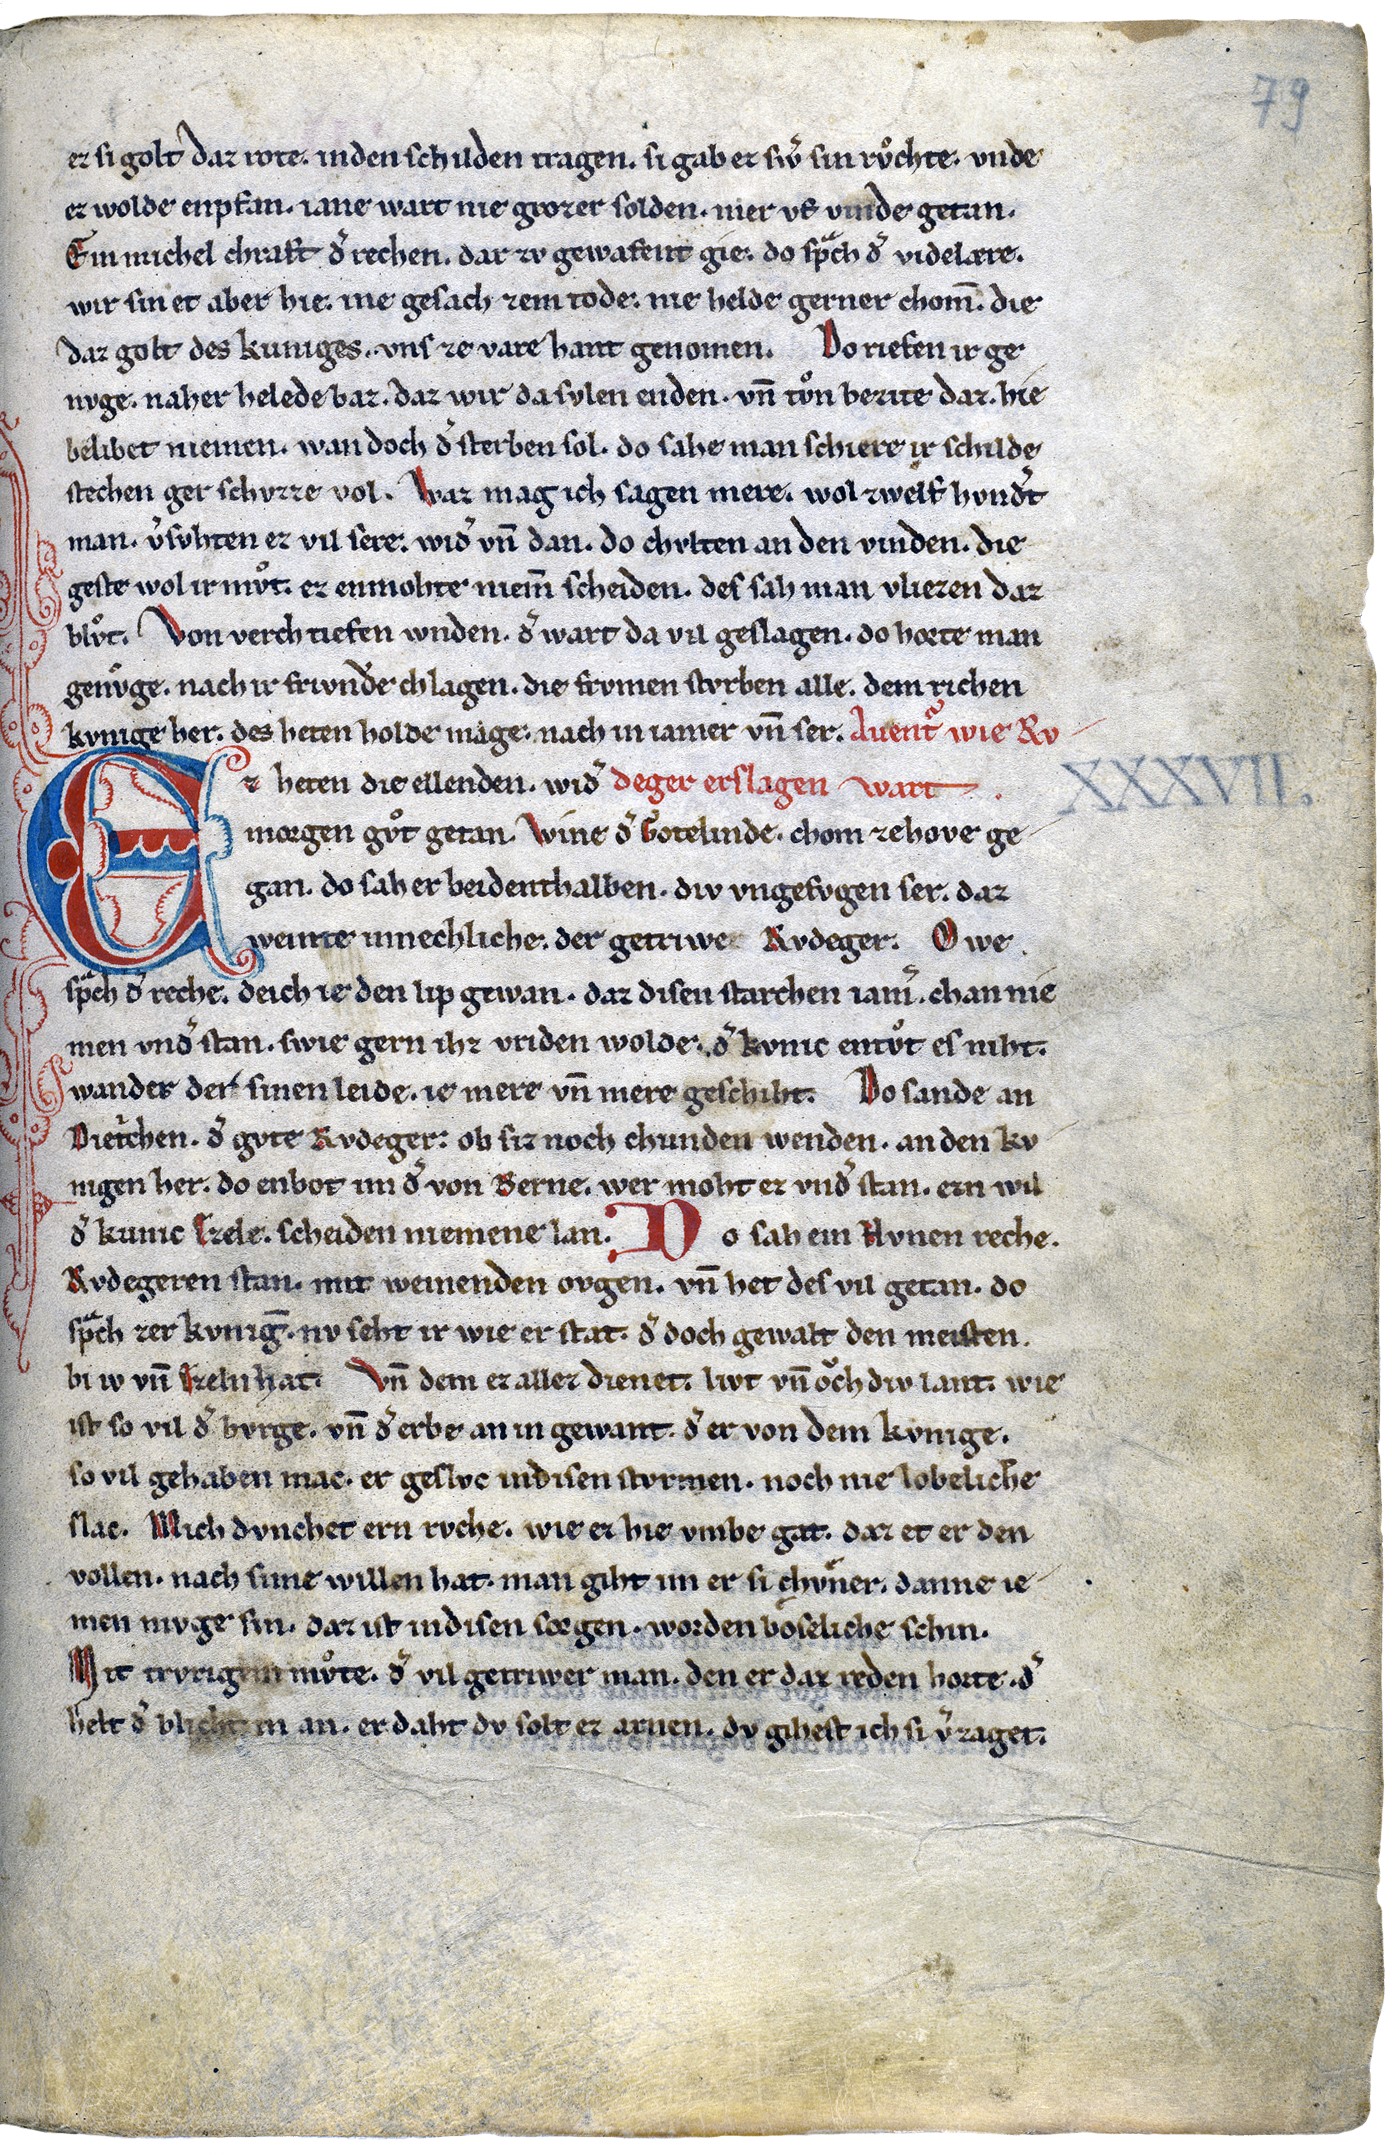 79
ez si golt daz rote. in den schilden tragen. si gab ez swˀ sin růchte. vnde
ez wolde enpfan. iane wart nie grozer solden. mer vf vinde getan.
Ein michel chraft dˀ rechen. dar zv gewafent gie. do spͣch dˀ videlære.
wir sin et aber hie. ine gesach zem tode. nie helde gerner chom̄. die
daz golt des kuniges. vns ze vare hant genomen. Do riefen ir ge
nvge. naher helede baz. daz wir da svlen enden. vn̄ tůn bezite daz. hie
belibet niemen. wan doch dˀ sterben sol. do sahe man schiere ir schilde
stechen ger schvzze vol. Waz mag ich sagen mere. wol zwelf hvndˀt
man. vˀsvhten ez vil sere. widˀ vn̄ dan. do chvlten an den vinden. die
geste wol ir můt. ez enmohte niem̄ scheiden. des sah man vliezen daz
blůt. Von verch tiefen wnden. dˀ wart da vil geslagen. do horte man
genůge. nach ir friwnde chlagen. die frvmen stvrben alle. dem richen
kvnige her. des heten holde mage. nach in iamer vn̄ ser. Auentˀ wie Rv
Ez heten die ellenden. widˀ deger erslagen wart
morgen gůt getan. Wine dˀ Gotelinde. chom ze hove ge
gan. do sah er beidenthalben. div vngefvgen ser. daz
weinte innechliche. der getriwe Rvdeger. Owe
XXXVII.
spͣch dˀ reche. deich ie den lip gewan. daz disen starchen iamˀ. chan nie
men vndˀ stan. swie gern ihz vriden wolde. dˀ kvnic entůt es niht.
wander der sinen leide. ie mere vn̄ mere geschiht. Do sande an
Dietrichen. dˀ gvte Rvdeger. ob siz noch chunden wenden. an den kv
nigen her. do enbot im dˀ von Berne. wer moht ez vndˀ stan. ezn wil
dˀ kunic Ezele. scheiden niemene lan. Do sah ein Hvnen reche.
Rvdegeren stan. mit weinenden ovgen. vn̄ het des vil getan. do
spͣch zer kvniḡ. nv seht ir wie er stat. dˀ doch gewalt den meisten.
bi iv vn̄ Ezeln hat. Vn̄ dem ez allez dienet. livt vn̄ och div lant. wie
ist so vil dˀ bvrge. vn̄ dˀ erbe an in gewant. dˀ er von dem kvnige.
so vil gehaben mac. er geslvc in disen stvrmen. noch nie lobelichē
slac. Mich dvnchet ern rvche. wie ez hie vmbe gat. daz et er den
vollen. nach sime willen hat. man giht im er si chvner. danne ie
men mvge sin. daz ist in disen sorgen. worden boseliche schin.
Mit trvrigem můte. dˀ vil getriwer man. den er daz reden horte. dˀ
helt dˀ blichtn an. er daht dv solt ez arnen. dv gihest ich si vˀzaget.